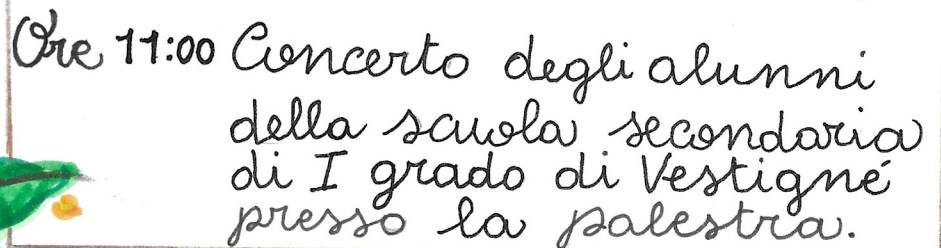 Ore 11:00 Concerto degli alunni
della scuola secondaria
di I grado di Vestigné
presso la palestra.